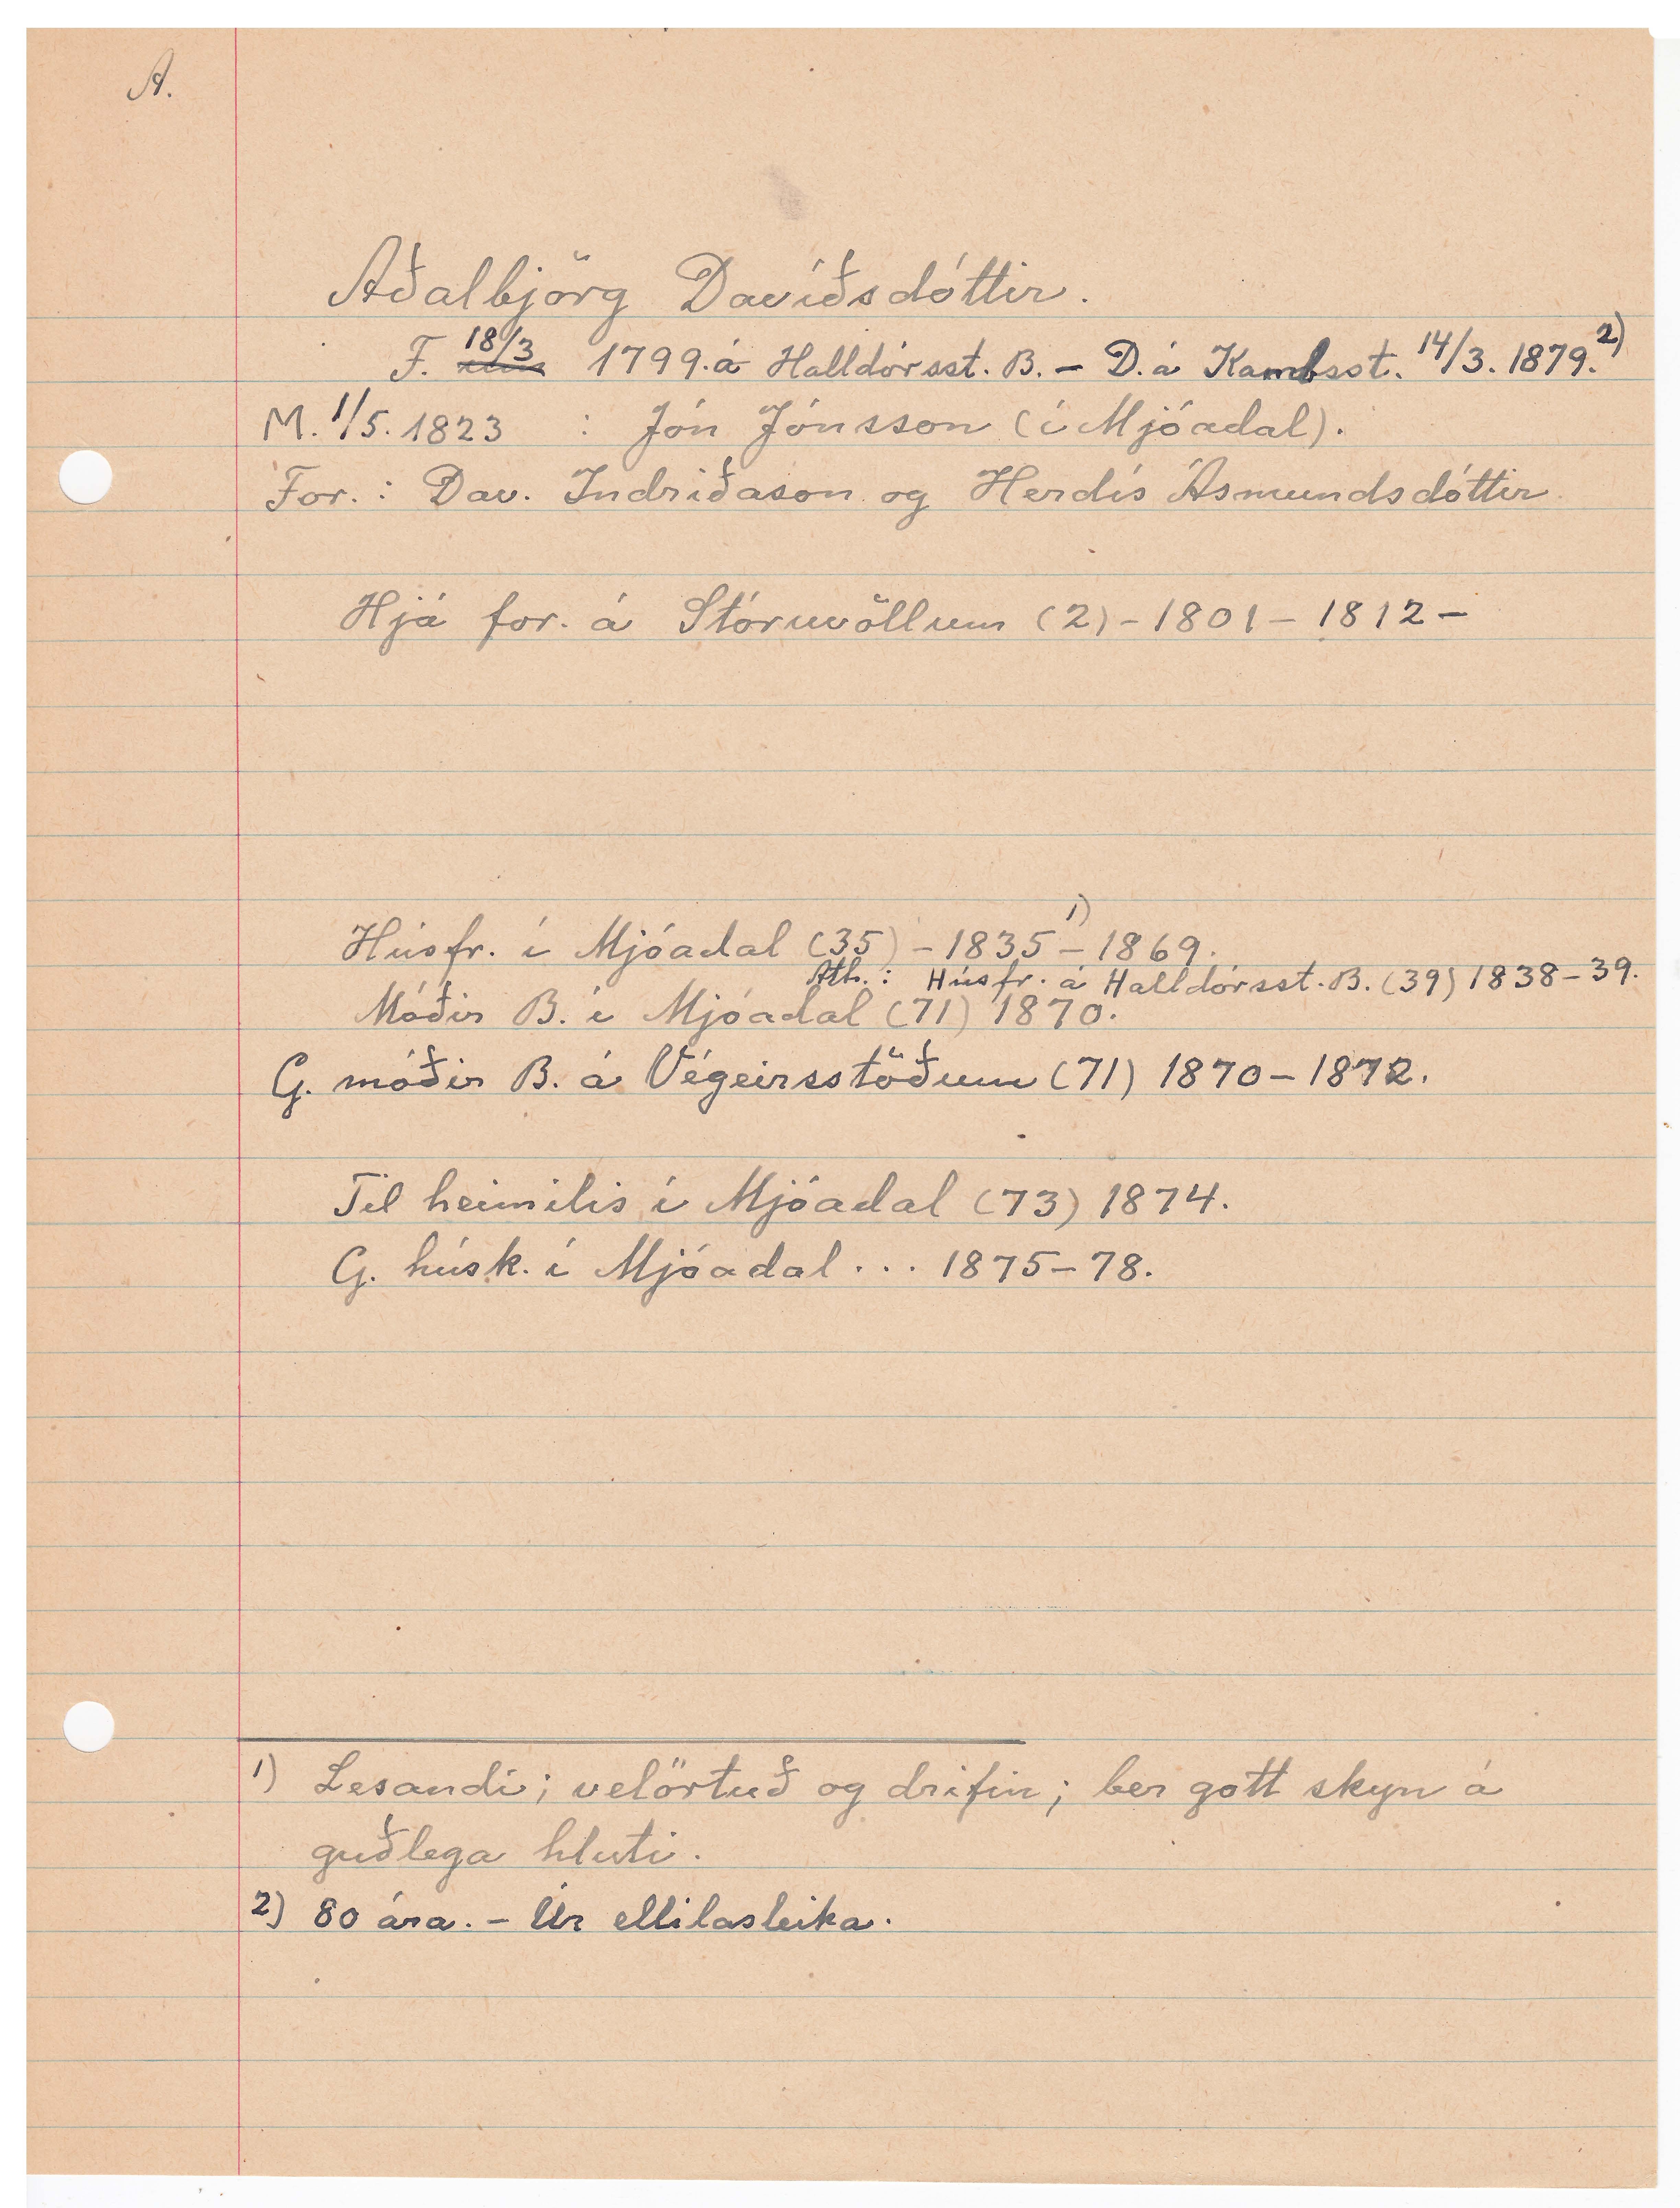 A.
Aðalbjörg Davíðsdóttir.
F. 18/3 1799. á Halldórsst. B. – D. á Kambsst. 14/3. 1879. 2)
M. 1/5. 1823 : Jón Jónsson (í Mjóadal).
For. : Dav. Indriðason og Herdís Ásmundsdóttir
Hjá for. á Stóruvöllum (2) – 1801 – 1812 –
Húsfr. í Mjóadal (35) – 1835 1) – 1869.
Ath. : Húsfr. á Halldórsst. B. (39) 1838 – 39.
Móðir B. í Mjóadal (71) 1870.
G. móðir B. á Végeirsstöðum (71) 1870 – 1872.
Til heimilis í Mjóadal (73) 1874.
G. húsk. í Mjóadal . . . 1875 – 78.
1) Lesandi; velörtuð og drífin; ber gott skyn á
guðlega hluti.
2) 80 ára. – Úr ellilasleika.